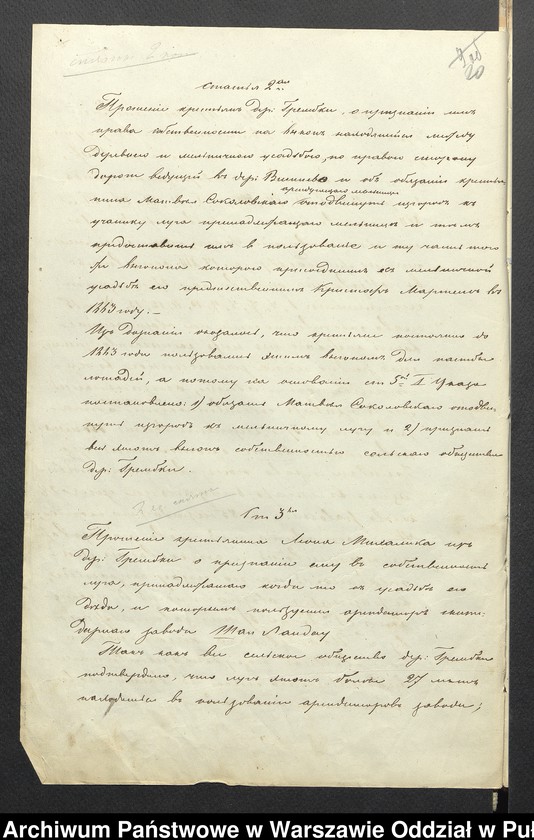 статья 2ая
Прошеніе крестьянъ дер: Грембки, о признаніи имъ
права собственности на выгонъ находящійся между
деревнею и мельничною усадьбою, по правой сторону
дороги ведущей въ дер: Вишнево и объ обязаніи крестья-
нина Матвѣя Соколовскаго отодвинуть изгородь къ
участку луга принадлежащаго мельницѣ и тѣмъ
предоставить имъ в пользованіе и ту часть того
же выгона которую присоединилъ къ мельничной
усадьбѣ его предшественникъ Кристофъ Мартенъ въ
1843 году. —
Изъ Дознанія оказалось, что крестьяне постоянно до
1843 года пользовались этимъ выгономъ для пастьбы
лошадей, а потому на основаніи ст 5й I Указа
постановлено: 1) обязать Матвѣя Соколовскаго отодви-
нуть изгородь къ мельничному лугу и 2) признать
весь этотъ выгонъ собственностью сельскаго общества
дер: Грембки.
Ст 3ья
Прошеніе крестьянина Леона Михалика изъ
дер: Грембки о признаніи ему въ собственность
луга, принадлежащаго когда то къ усадьбѣ его
Дѣда, и которымъ пользуется арендаторъ
завода Ландау
Такъ какъ все сельское общество дер: Грембки
подтвердило, что лугъ этотъ болѣе 27 лѣтъ
находится въ пользованіи арендаторовъ завода;
20
Archiwum Państwowe w Warszawie Oddział w Puł